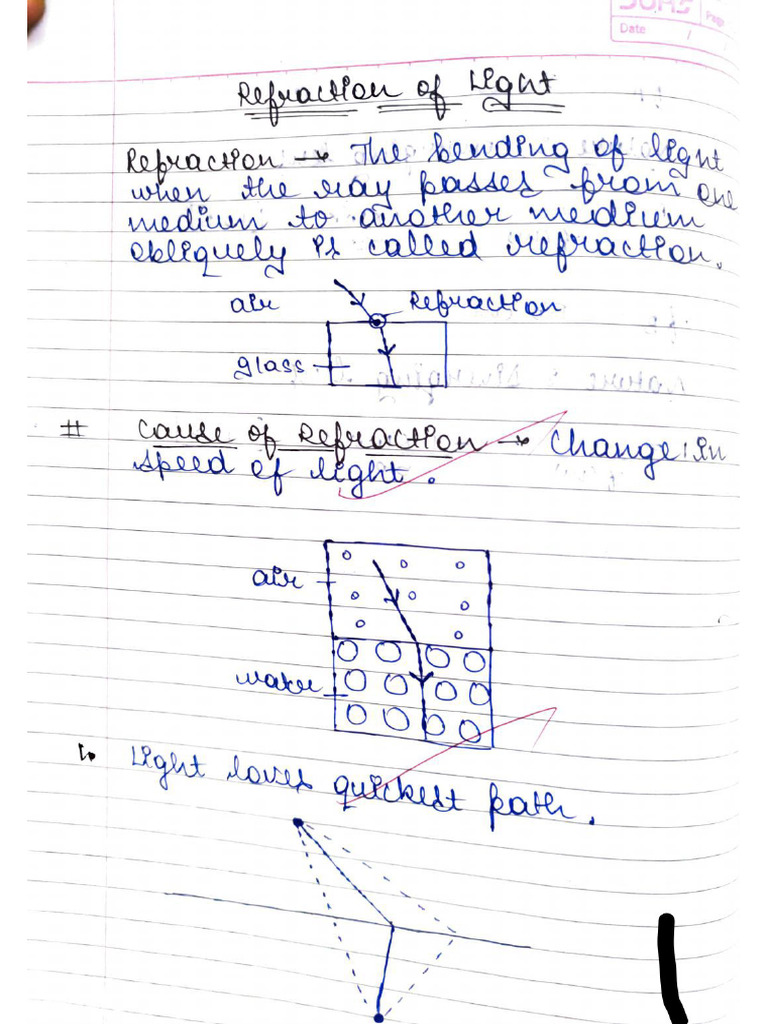 Date
Refraction of Light
Refraction → The bending of light
when the ray passes from one
medium to another medium
obliquely is called refraction.
air
Refraction
glass
# Cause of Refraction → Change in
speed of light.
air
water
Light loves quickest path.